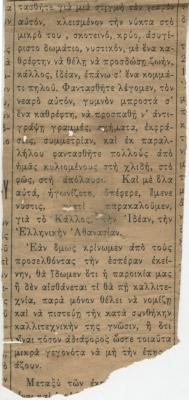 τασθῆτε γιὰ μιὰ στιγμὴ τὸν νεαρὸ
αὐτόν, κλεισμένον τὴν νύκτα στὸ
μικρό του, σκοτεινό, κρύο, ἀσυγύ-
ριστο δωμάτιο, νυστικόν, μὲ ἕνα κα-
θρέφτην νὰ θέλῃ νὰ προσδώσῃ ζωήν,
κάλλος, Ἰδέαν, ἐπάνω σ' ἕνα κομμά-
τι πηλοῦ. Φαντασθῆτε λέγομεν, τὸν
νεαρὸ αὐτόν, γυμνὸν μπροστὰ σ'
ἕνα καθρέφτη, νὰ προσπαθῇ ν' ἀντι-
γράψῃ γραμμές, σχήματα, ἐκφρά-
σεις, συμμετρίαν, καὶ ἐκ παραλ-
λήλου φαντασθῆτε πολλοὺς ἀπὸ
ἡμᾶς κυλιομένους στὴ χλιδή, στὸ
φῶς, στὴ ἀπόλαυσι. Καὶ μὲ ὅλα
αὐτά, ἠγωνίζετο, ὑπέφερε, ἔμενε
νύστις, παρακαλοῦμεν,
γιὰ τὸ Κάλλος, τὴν Ἰδέαν, τὴν
Ἑλληνικὴν Ἀθανασίαν.
Ἐὰν ὅμως κρίνωμεν ἀπὸ τοὺς
προσελθόντας τὴν ἑσπέραν ἐκεί-
νην, θὰ ἴδωμεν ὅτι ἡ παροικία μας
ἢ δὲν αἰσθάνεται τί θὰ πῇ καλλιτε-
χνία, παρὰ μόνον θέλει νὰ νομίζῃ
καὶ νὰ πιστεύῃ τὴν κατὰ συνθήκην
καλλιτεχνικήν της γνῶσιν, ἢ ὅτι
εἶναι τόσον ἀδιάφορος ὥστε τοιαῦτα
μικρὰ γεγονότα νὰ μὴ τὴν ἐπηρε-
άζουν.
Μεταξὺ τῶν